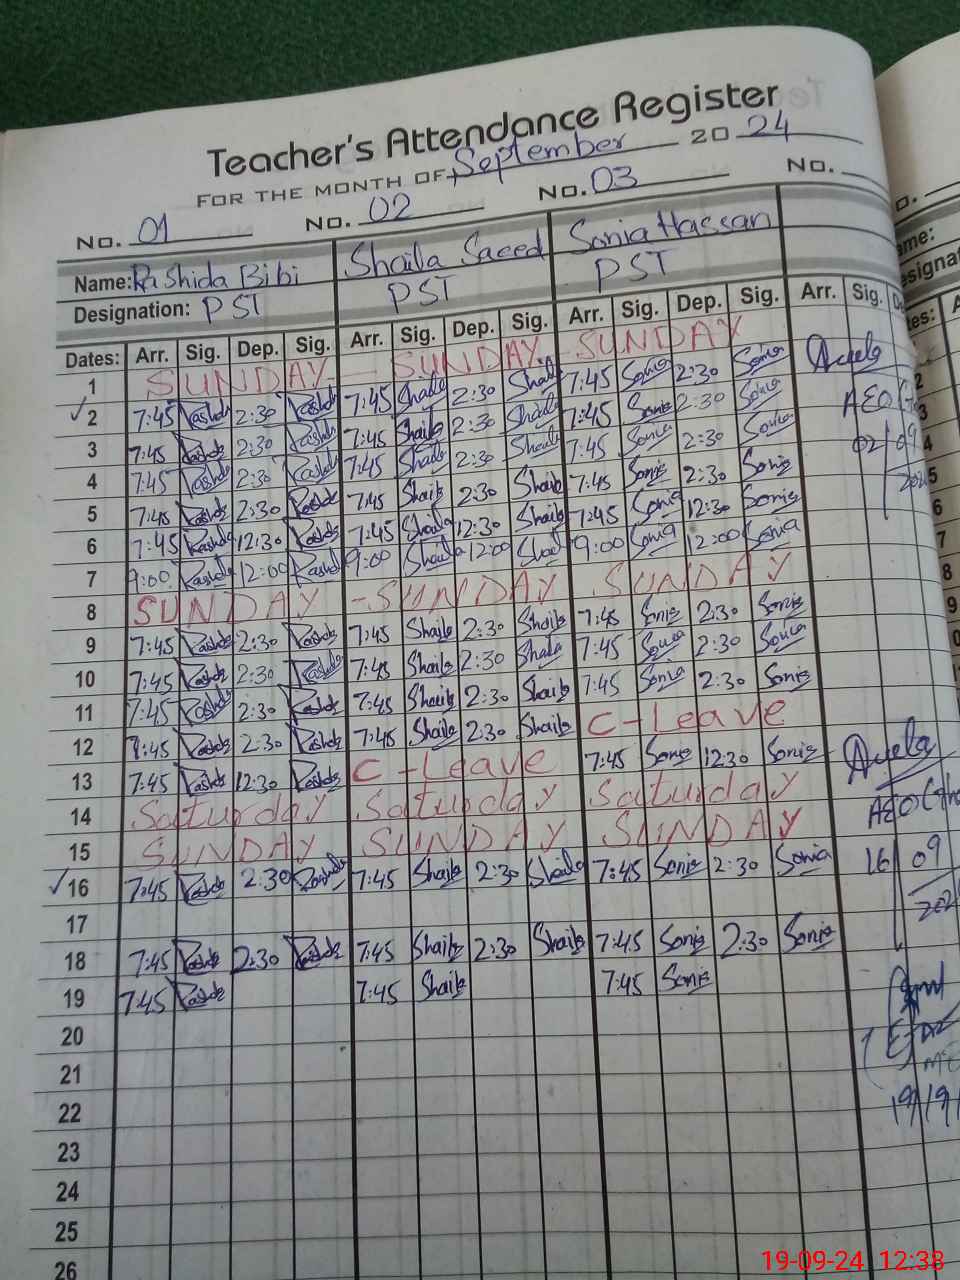 Teacher's Attendance Register
FOR THE MONTH OF September 2024
No. 01 No. 02 No. 03 No.
Name: Rashida Bibi Shaila Saeed Sonia Hassan
Designation: PST PST PST
Dates: Arr. Sig. Dep. Sig. Arr. Sig. Dep. Sig. Arr. Sig. Dep. Sig. Arr. Sig.
1 SUNDAY - SUNDAY - SUNDAY
2 7:45 Rashda 2:30 Rashda 7:45 Shaila 2:30 Shaila 7:45 Sonia 2:30 Sonia
3 7:45 Rashda 2:30 Rashda 7:45 Shaila 2:30 Shaila 7:45 Sonia 2:30 Sonia AEO
4 7:45 Rashda 2:30 Rashda 7:45 Shaila 2:30 Shaila 7:45 Sonia 2:30 Sonia 02 09
5 7:45 Rashda 2:30 Rashda 7:45 Shaila 2:30 Shaila 7:45 Sonia 2:30 Sonia
6 7:45 Rashda 12:30 Rashda 7:45 Shaila 12:30 Shaila 7:45 Sonia 12:30 Sonia
7 9:00 Rashda 12:00 Rashda 9:00 Shaila 12:00 Shaila 9:00 Sonia 12:00 Sonia
8 SUNDAY - SUNDAY SUNDAY
9 7:45 Rashda 2:30 Rashda 7:45 Shaila 2:30 Shaila 7:45 Sonia 2:30 Sonia
10 7:45 Rashda 2:30 Rashda 7:45 Shaila 2:30 Shaila 7:45 Sonia 2:30 Sonia
11 7:45 Rashda 2:30 Rashda 7:45 Shaila 2:30 Shaila 7:45 Sonia 2:30 Sonia
12 7:45 Rashda 2:30 Rashda 7:45 Shaila 2:30 Shaila C-Leave
13 7:45 Rashda 12:30 Rashda C-Leave 7:45 Sonia 12:30 Sonia
14 Saturday Saturday Saturday AEO
15 SUNDAY SUNDAY SUNDAY
16 7:45 Rashda 2:30 Rashda 7:45 Shaila 2:30 Shaila 7:45 Sonia 2:30 Sonia 16 09
17
18 7:45 Rashda 2:30 Rashda 7:45 Shaila 2:30 Shaila 7:45 Sonia 2:30 Sonia
19 7:45 Rashda 7:45 Shaila 7:45 Sonia
20
21
22 19/9/
23
24
25
26
19-09-24 12:38